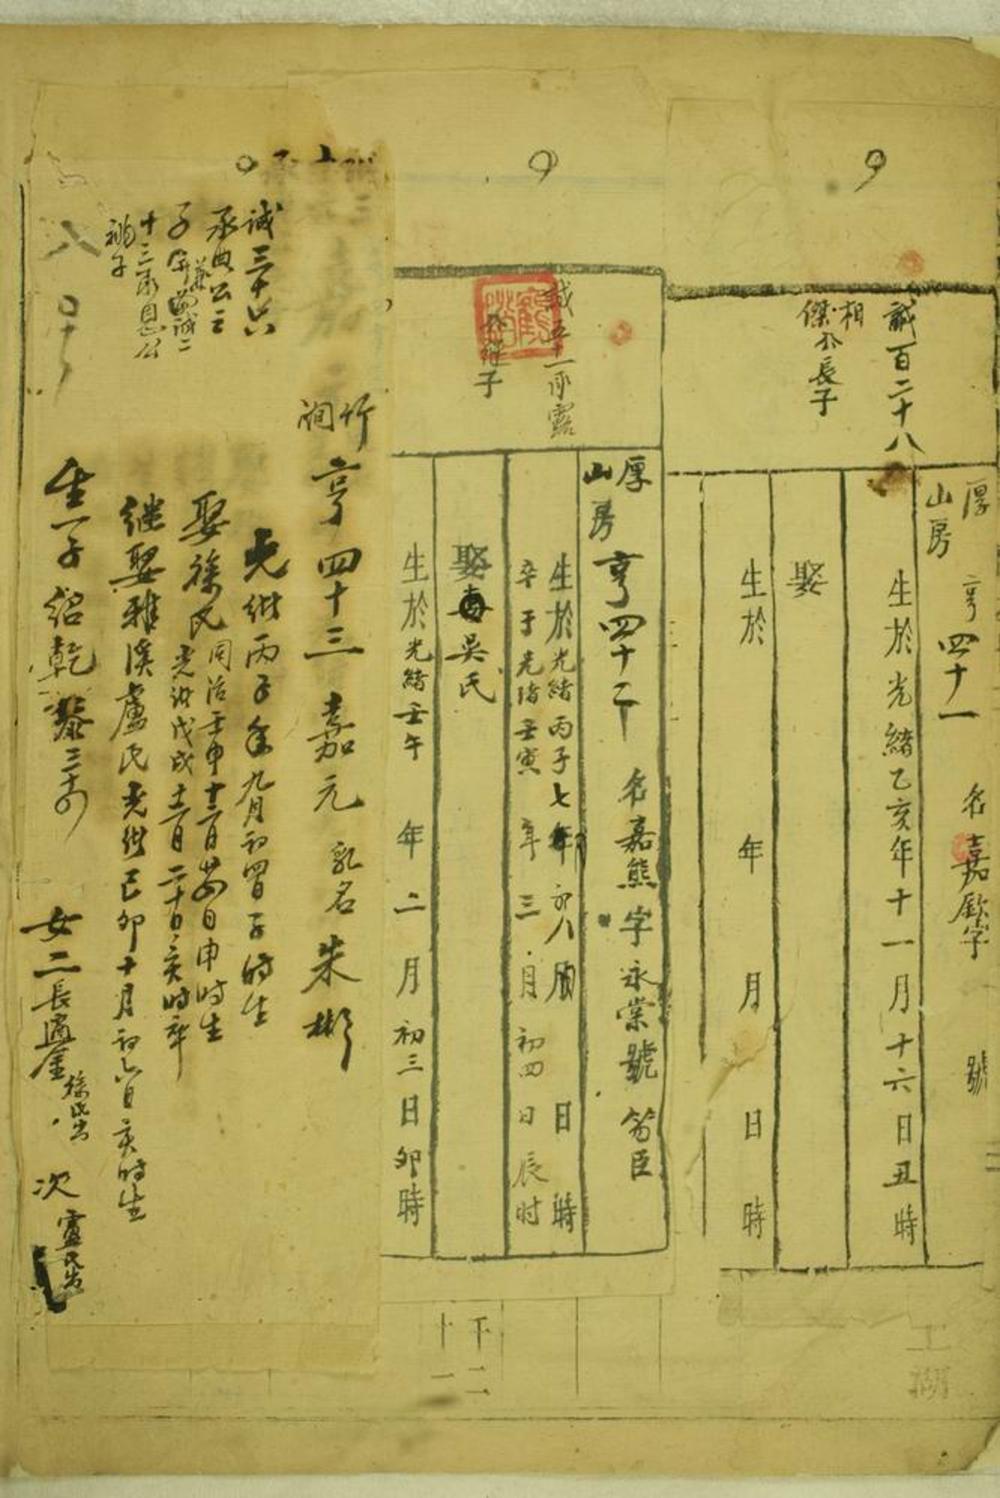 誠百二十八
相
傑公長子
厚
山房
亨四十一
名嘉欽字
號
生於光緒乙亥年十一月十六日丑時
娶
生於 年 月 日 時
誠五十一承露
公繼子
厚
山房
亨四十二
名嘉熊字永棠號
臣
生於光緒丙子七年初八 日 時
卒于光緒壬寅年三月初四日辰时
娶吳氏
生於光緒壬午年二月初三日卯時
誠三十六
承典公三
子
十三承恩公
祧子
竹
澗
亨四十三嘉元乳名朱彬
光緒丙子年九月初四日子时生
娶徐氏同治壬申十二月廿四日申时生
光緒戊戌十二月二十日亥时卒
继娶雅溪盧氏光緒己卯十月初六日亥时生
生一子紹乾
女二長適金徐氏出
次盧氏出
下二
十一